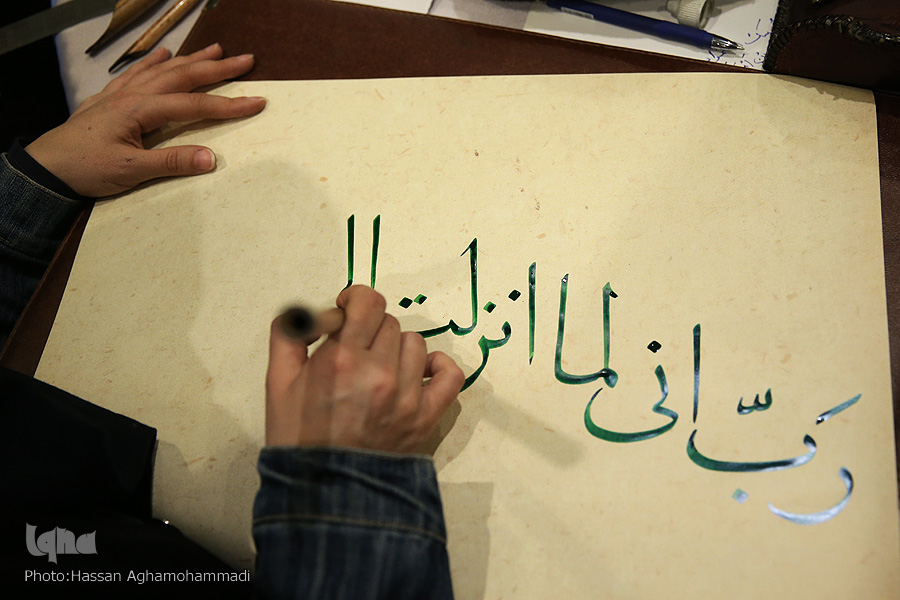 ربّ انی لما انزلت ال
Iqna
Photo:Hassan Aghamohammadi